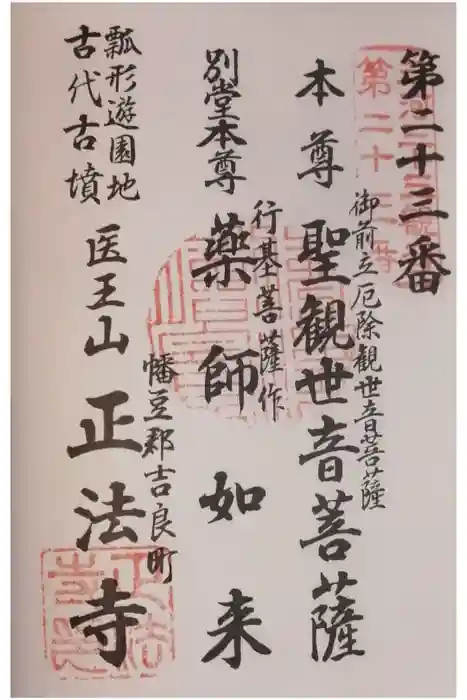 第二十三番
第二十三番
御前立厄除観世音菩薩
本尊 聖観世音菩薩
行基菩薩作
別堂本尊 薬師如来
幡豆郡吉良町
瓢形遊園地
古代古墳
医王山 正法寺